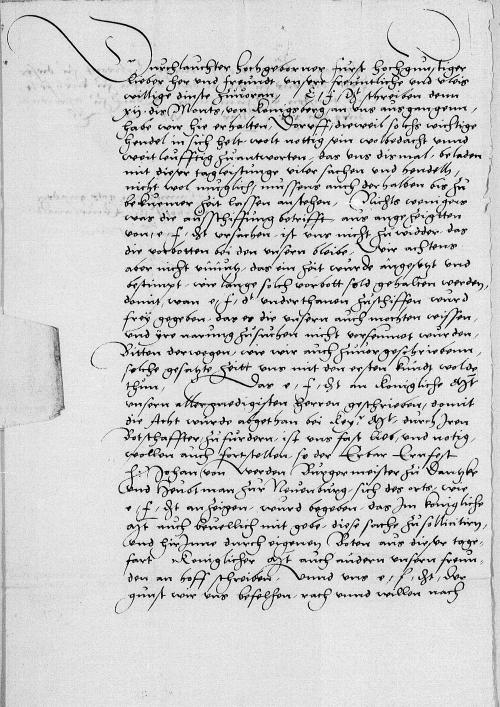 Durchlauchter hochgeborner furst hochgunstiger
lieber her und freundt, unsere freuntliche und vleis
willige dinste zuuorann, E, f, dt schreiben denn
xij dis Monts, von Konigsberg an uns ausgangenn,
habe wir hie erhalten, Dorauff, dieweil solchs wichtige
hendel in sich helt, wol nottig sein wolbedacht unnd
weitleufftig zuantworten, das uns dismal, beladen
mit dieser tagleistunge viler sachen und hendelln,
nicht wol muglich, mussens auch derhalben bis zu
bekumer zeit lassen anstehen, Nichts wenigers
was die ausschiffung betrifft aus angezeigtten
von, e, f, dt ursachen, ist uns nicht zu widder das
die verbotten bei den unsern bleibe, Wir achtens
aber nicht unnutz, das ein zeit wurde angesetzt und
bestimpt, wie lange solch verbott sold gehalten werden,
domit, wan e, f, dt underthanen zuschiffen wurd
frey gegeben, das es die unsern auch mochten wissen,
und yre narung zusuchen nicht verseumet wurden,
Bitten derwegen, wie wir auch zuuor geschriebenn,
solche gesatzte zeitt uns mit den ersten kundt wolde
thun, Das e, f, dt an konigliche Mt
unsern allergnedigisten herren geschrieben, domit
die Acht wurde abgethan bei Key: Mt, durch Iren
Botschaffter zu furdern, ist uns fast lieb, und notig,
wollen auch fortstellen so der Erbar Ernfest
her Johan von Werden Burgermeister zu Dantzke
und heubtman zur Neuenburg, sich des orts, wie
e, f, dt anzeigen, wurd begeben, das Im konigliche
Mt auch beuellich mit gebe, diese sache zu sollicitirn,
und hirInne durch eigenen Boten aus dieser tage-
fart Koniglicher Mt auch andern unsern freun-
den an hoff schreiben, Unnd uns e, f, dt, der
gunst wir uns befelhen, rach unnd willen nach